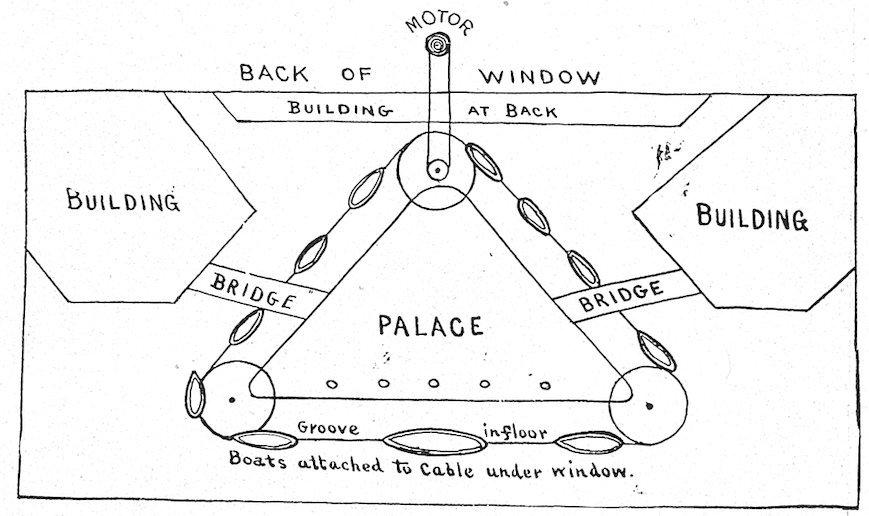 MOTOR
BACK OF WINDOW
BUILDING AT BACK
BUILDING
BUILDING
BRIDGE
BRIDGE
PALACE
Groove in floor
Boats attached to Cable under window.